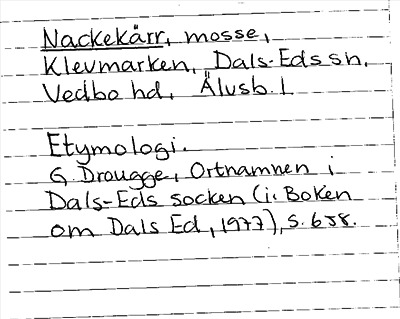 Nackekärr, mosse,
Klevmarken, Dals-Eds sn,
Vedbo hd, Älvsb. l
Etymologi.
G Drougge, Ortnamnen i
Dals-Eds socken (i: Boken
om Dals Ed, 1977), s. 658.